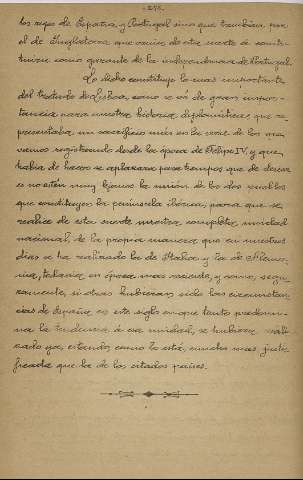 los reyes de España y Portugal sino que tambien por
el de Inglaterra que venia de esta suerte á consti-
tuirse como garante de la independencia de Portugal.
Lo dicho constituye lo mas importante
del tratado de Lisboa, como se vé de gran impor-
tancia para nuestra historia diplomática, que re-
presentaba, un sacrificio más en la serie de los que
vamos registrando desde la época de Felipe IV, y que
habia de hacer se aplazara para tiempos que de desear
es no estén muy lejanos la unión de los dos pueblos
que constituyen la península ibérica, para que se
realice de esta suerte nuestra completa unidad
nacional, de la propia manera que en nuestros
dias se ha realizado la de Italia y la de Alema-
nia, todavia en época mas reciente, y como, segu-
ramente, si otras hubieran sido las circunstan-
cias de España, en este siglo en que tanto predomi-
na la tendencia á esa unidad, se hubiera reali-
zado ya, estando como lo está, mucho mas justi-
ficada que la de los citados paises.